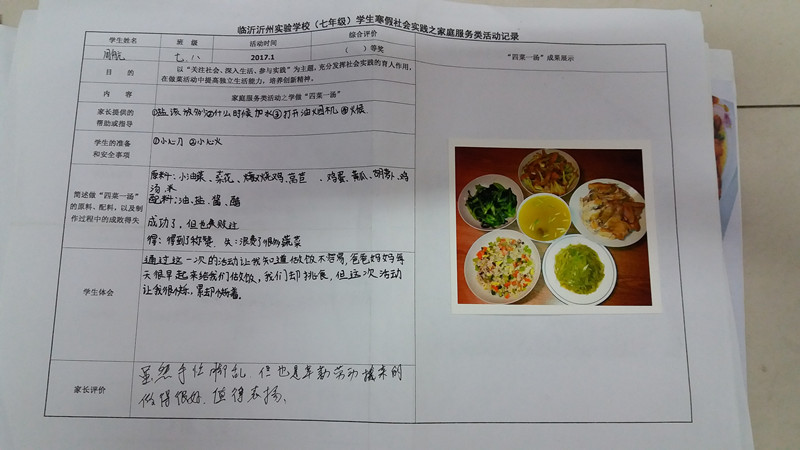 临沂沂州实验学校（七年级）学生寒假社会实践之家庭服务类活动记录
学生姓名 班 级 活动时间 综合评价 “四菜一汤”成果展示
七.八 2017.1 （ ）等奖
目 的
以“关注社会、深入生活、参与实践”为主题，充分发挥社会实践的育人作用，
在做菜活动中提高独立生活能力，培养创新精神。
内 容 家庭服务类活动之学做“四菜一汤”
家长提供的
帮助或指导
①盐 ②什么时候加水③打开油烟机④火候
学生的准备
和安全事项
①小心刀 ②小心火
简述做“四菜一汤”
的原料、配料，以及制
作过程中的成败得失
原料:小油菜、菜花、烧鸡、莴苣、鸡蛋、黄瓜、胡萝卜、鸡
汤、米
配料:油、盐、酱、醋
成功了，但也失败过
得:得到了称赞 失:浪费了很多蔬菜
学生体会
通过这一次的活动让我知道做饭不容易，爸爸妈妈每
天很早起来给我们做饭，我们却挑食，但这次活动
让我很快乐，累却快乐着。
家长评价
虽然手忙脚乱，但也是辛勤劳动换来的
做得很好，值得表扬、